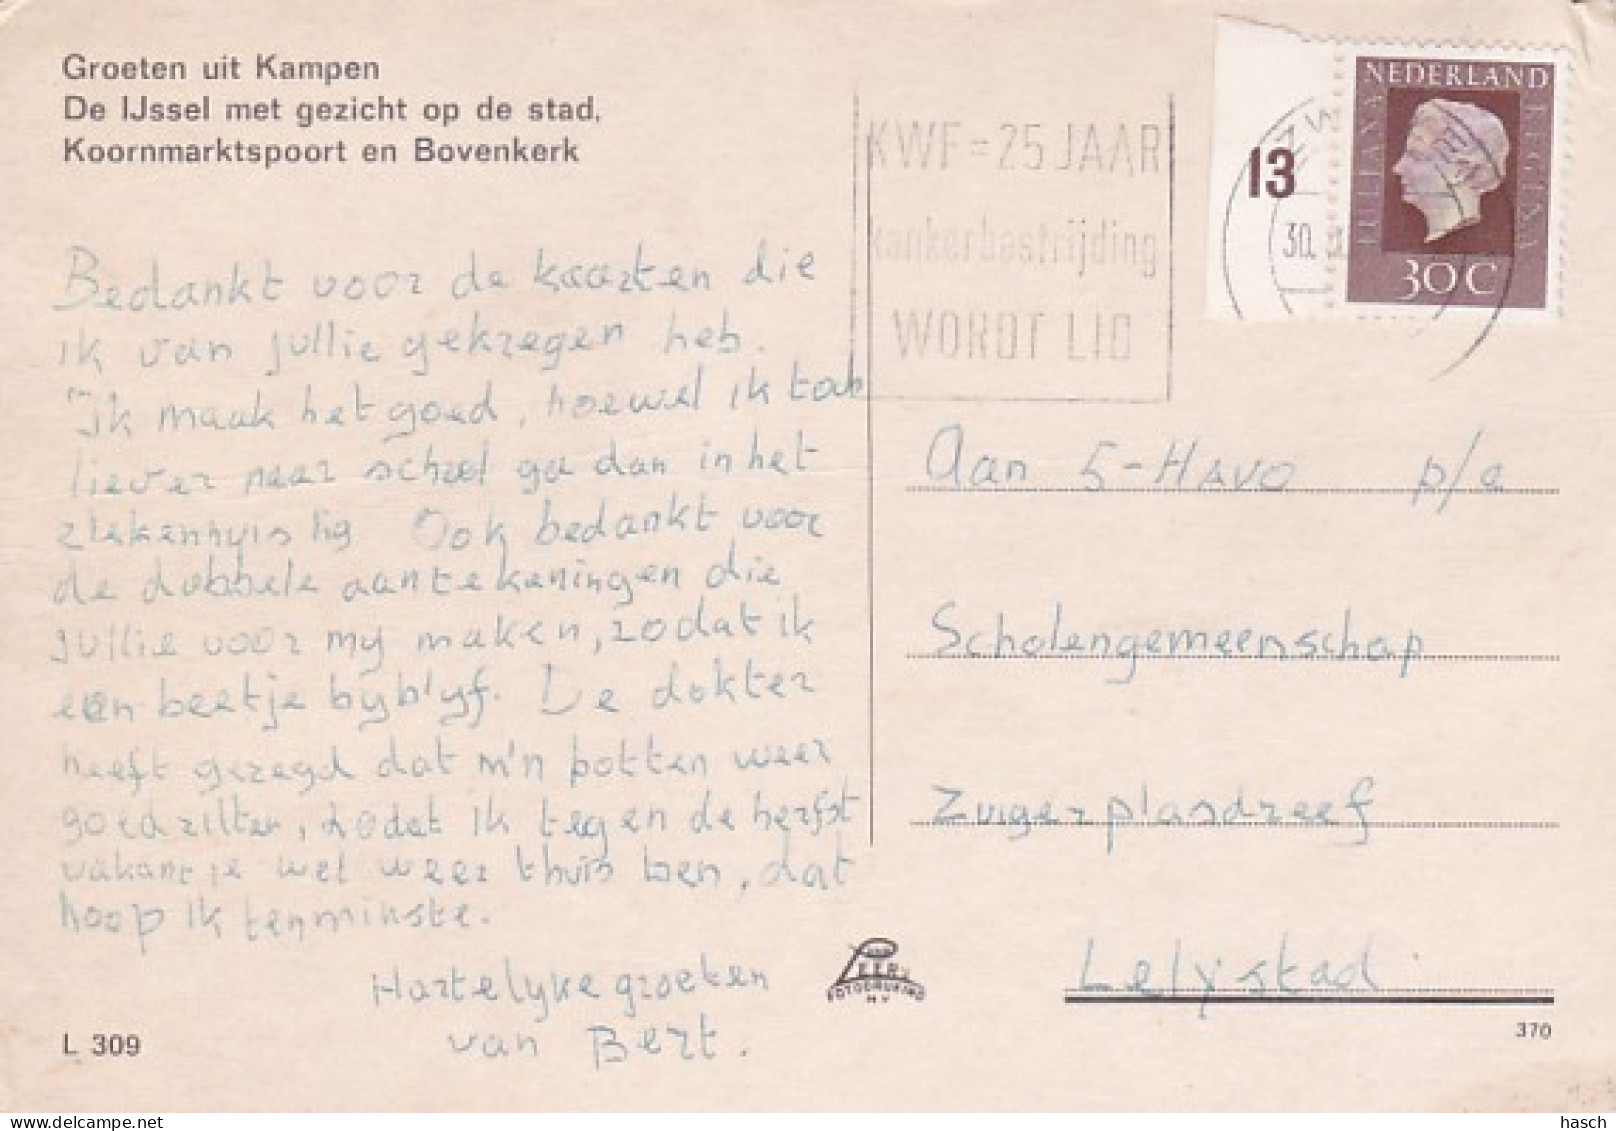 Groeten uit Kampen
De IJssel met gezicht op de stad,
Koornmarktspoort en Bovenkerk
KWF = 25 JAAR
kankerbestrijding
WORDT LID
13
30.
NEDERLAND
JULIANA REGINA
30C
Bedankt voor de kaarten die
ik van jullie gekregen heb.
Ik maak het goed, hoewel ik toch
liever naar school ga dan in het
ziekenhuis lig Ook bedankt voor
de dubbele aantekeningen die
jullie voor mij maken, zodat ik
een beetje bijblijf. De dokter
heeft gezegd dat m'n botten weer
goed zitten, zodat ik tegen de herfst
vakantje wel weer thuis ben, dat
hoop ik tenminste.
Hartelijke groeten
van Bert.
Aan 5-HAVO p/a
Scholengemeenschap
Zuigerplasdreef
Lelystad.
FOTODRUKKERIJ
N.V.
L 309
370
hasch